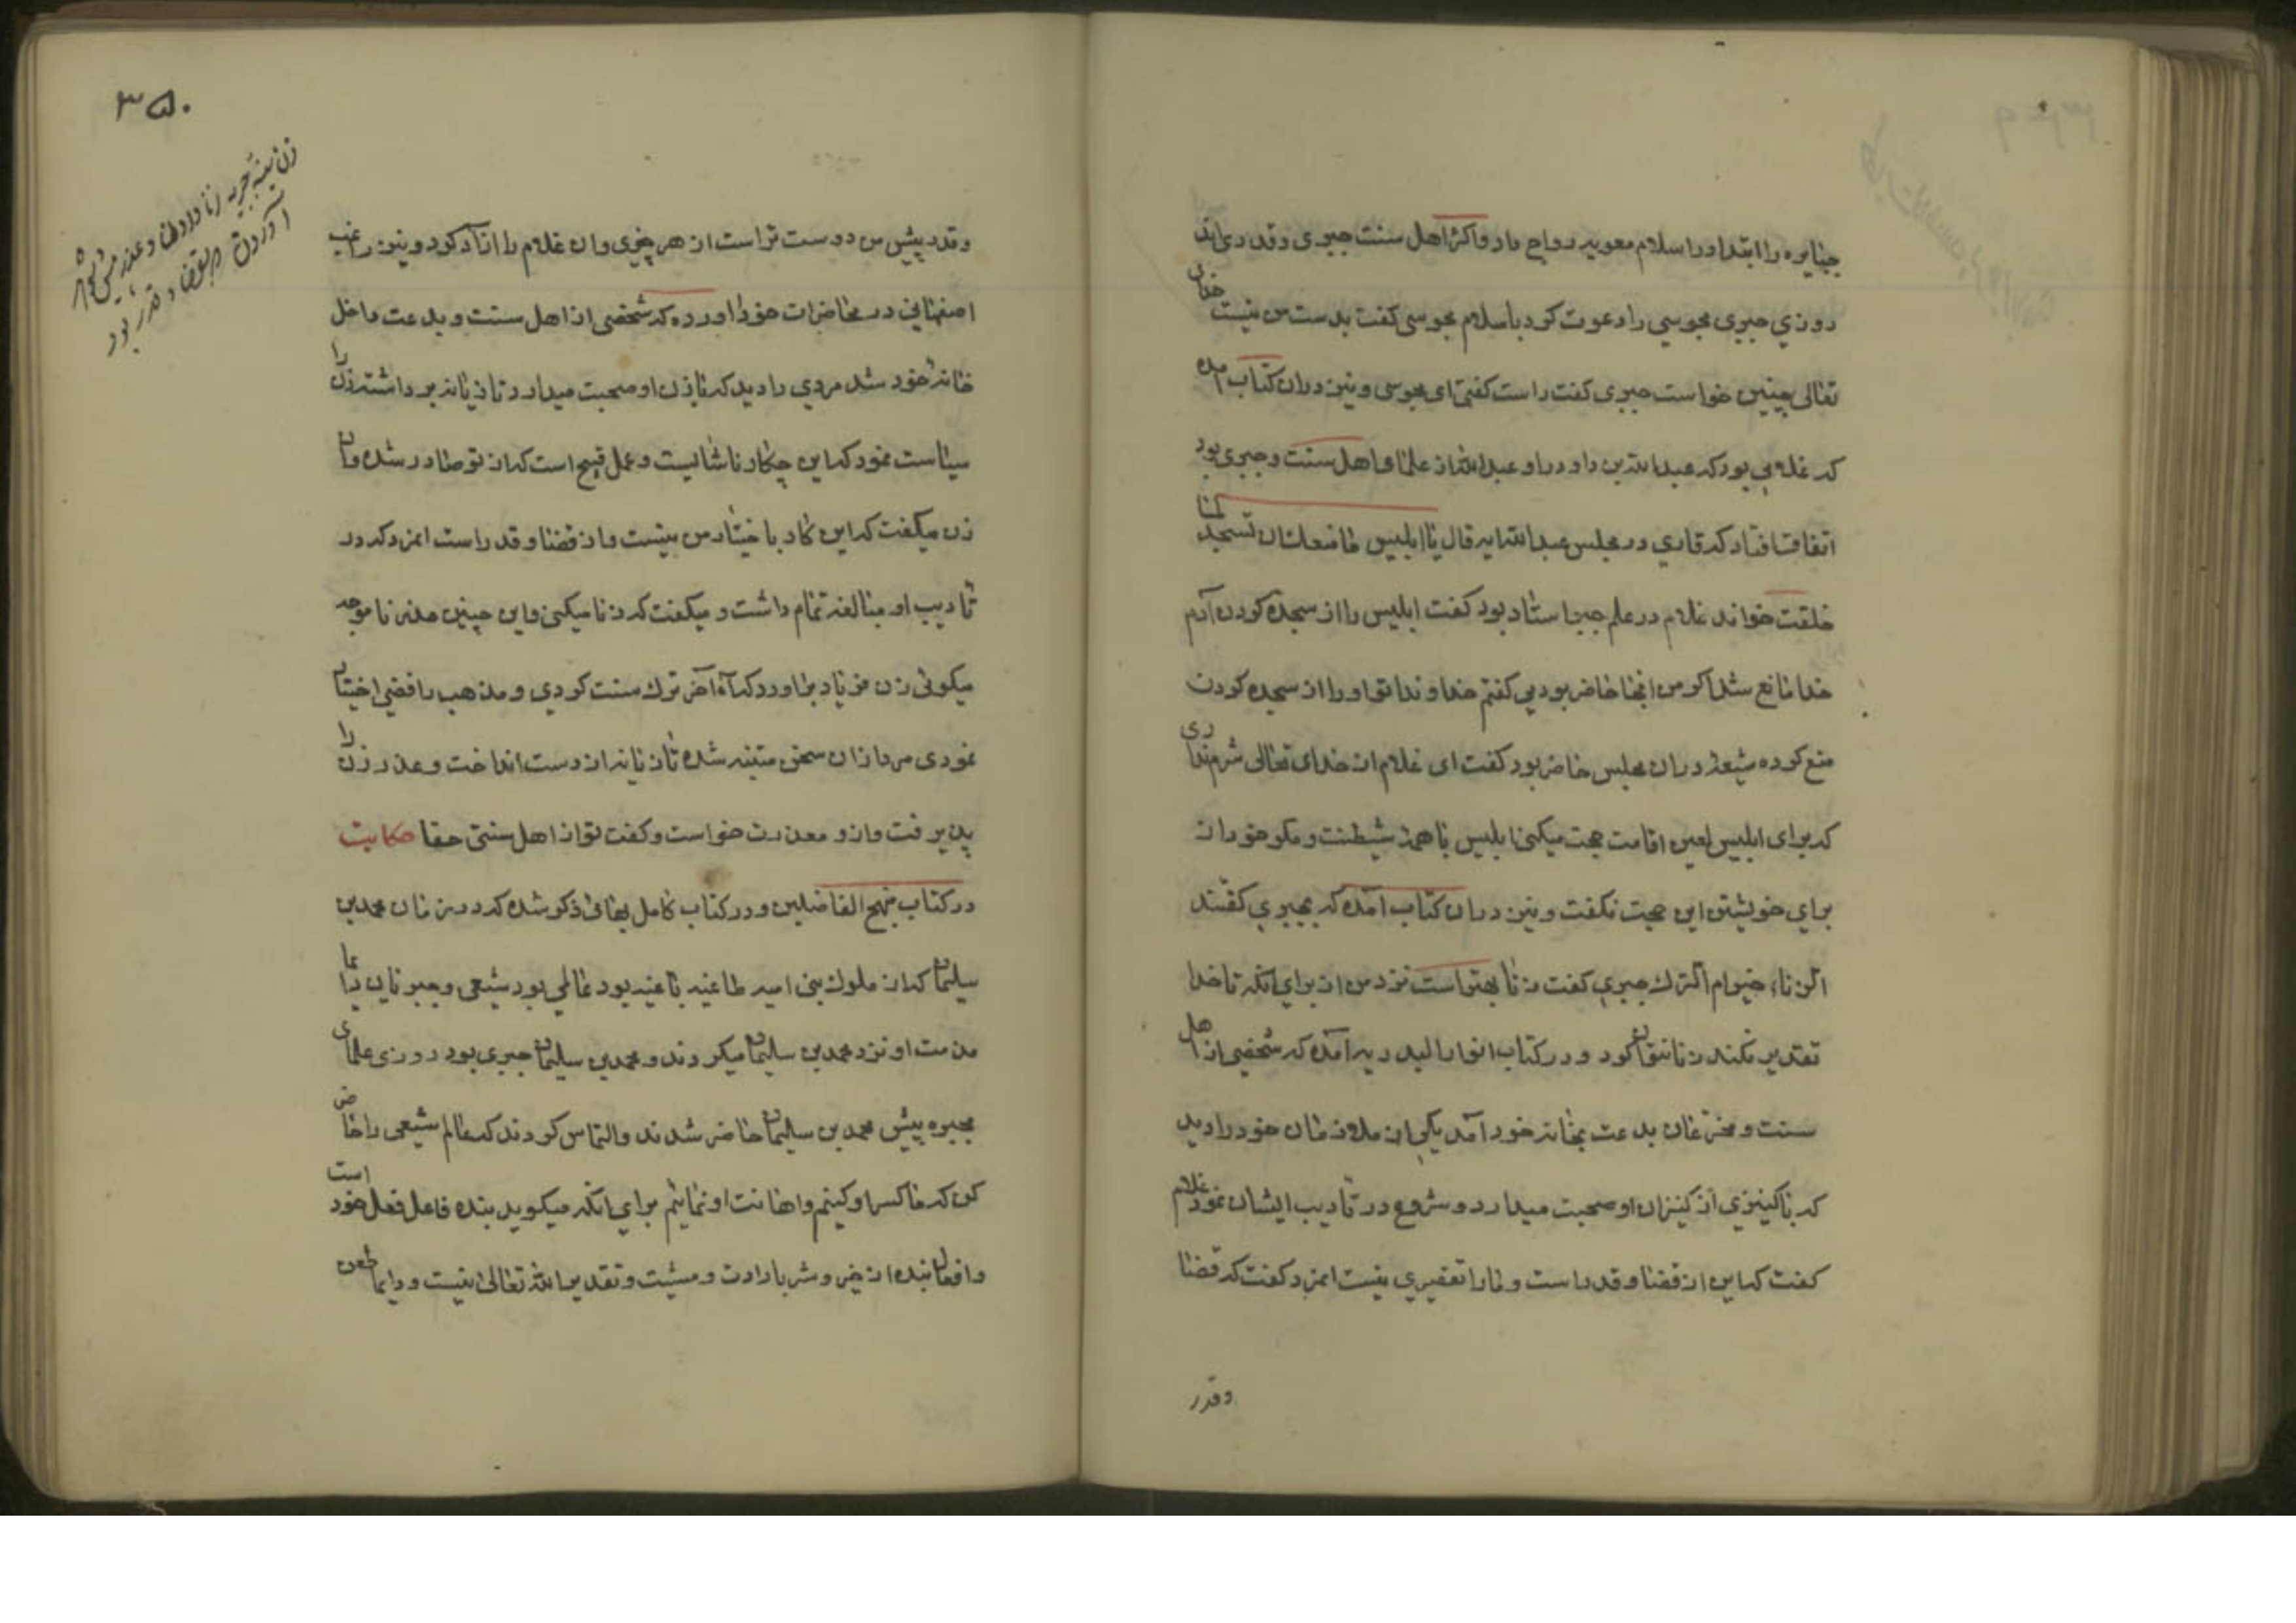 جبایره را ابتدا در اسلام معویه رواج داد و اکثر اهل سنت جبری و قدری‌اند
روزی جبری مجوسی را دعوت کرد باسلام مجوسی گفت بدست من نیست خدای
تعالی چنین خواست جبری گفت راست گفتی ای مجوسی و نیز دران کتاب آمده
که غلامی بود که عبدالله بن داود را و عبدالله از علمای اهل سنت و جبری بود
اتفاقا افتاد که قاری در مجلس عبدالله ایه قال یا ابلیس ما منعک ان تسجد لما
خلقت خواند غلام در علم جبر استاد بود گفت ابلیس را از سجده کردن آدم
خدا مانع شد اکر من انجا حاضر بودمی کفتم خداوندا تو او را از سجده کردن
منع کرده شیعهٔ دران مجلس حاضر بود کفت ای غلام از خدای تعالی شرم نداری
که برای ابلیس لعین اقامت حجت میکنی ابلیس با همهٔ شیطنت و مکر خود از
برای خویشتن این حجت نکفت و نیز دران کتاب آمده که بجبری کفتند
جبری کفت زنا بهتر است نزد من از برای انکه تا خدا
تقدیر نکند زنا نتوان کرد و در کتاب آمده که شخصی از اهل
سنت و بدعت بخانه خود آمد یکی از ملازمان خود را دید
که با کنیزی از کنیزان او صحبت میدارد و شروع در تادیب ایشان نمود غلام
کفت که این از قضا و قدر است و ما را تقصیری نیست امرد کفت که قضا
و قدر
۳۵۰
و قدر پیش من دوست تر است از هر چیزی وان غلام را ازاد کرد و نیز راغب
اصفهانی در محاضرات خود آورده که شخصی از اهل سنت و بدعت داخل
خانه خود شد مردی را دید که با زن او صحبت میدارد تازیانه برداشته زن را
سیاست نمود که این چکار ناشایست و عمل قبیح است که از تو صادر شده وان
زن میکفت که این کار با ختیار من نیست و از قضا و قدر است امرد که در
تادیب او مبالغه تمام داشت و میکفت که زنا میکنی و این چنین عذر ناموجه
میکوئی زن فریاد براورد که آه آخر ترک سنت کردی و مذهب رافضی اختیار
نمودی مرد ازان سخن متنبه شده تازیانه از دست انداخت و عذر زن را
پذیرفت و ازو معذرت خواست و کفت تو از اهل سنتی حقا حکایت
در کتاب منهج الفاضلین و در کتاب کامل بهائی ذکر شده که در زمان محمد بن
سلیمان که از ملوک بنی امیه طاغیه باغیه بود عالمی بود شیعی و جبریان دایما
مذمت او نزد محمد بن سلیمان میکردند و محمد بن سلیمان جبری بود روزی علمای
مجبره پیش محمد بن سلیمان حاضر شدند و التماس کردند که عالم شیعی را حاضر
کن که ما کسر او کنیم و اهانت او نمائیم برای انکه میکوید بنده فاعل فعل خود است
و افعال بنده از خیر و شر بارادت و مشیت و تقدیر الله تعالی نیست و دایما طعن